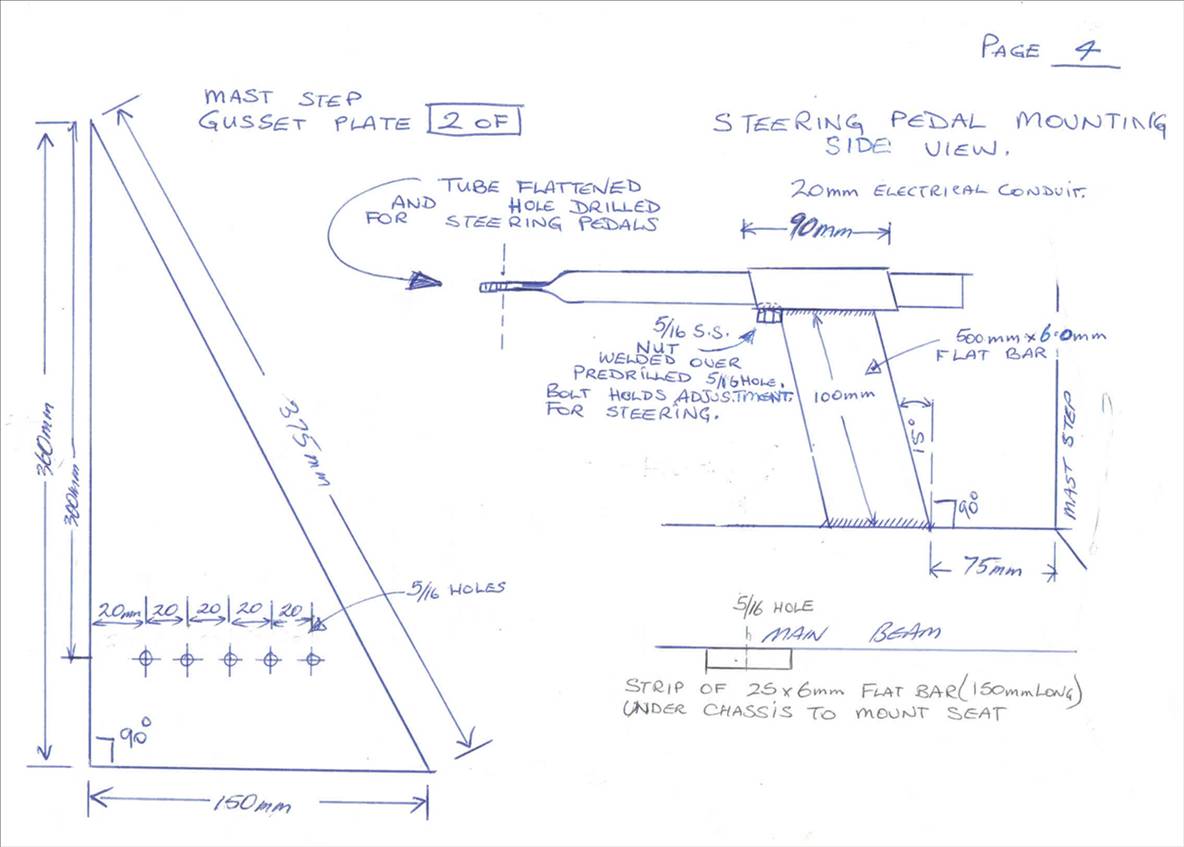 PAGE 4
MAST STEP
GUSSET PLATE 2 OF
STEERING PEDAL MOUNTING
SIDE VIEW.
TUBE FLATTENED
AND HOLE DRILLED
FOR STEERING PEDALS
20mm ELECTRICAL CONDUIT.
90mm
5/16 S.S.
NUT
WELDED OVER
PREDRILLED 5/16 HOLE.
BOLT HOLDS ADJUSTMENT.
FOR STEERING.
500mm x 6.0mm
FLAT BAR
100mm
15°
90°
MAST STEP
75mm
360mm
300mm
375mm
5/16 HOLES
20mm 20 20 20 20
90°
150mm
5/16 HOLE
MAIN BEAM
STRIP OF 25 x 6mm FLAT BAR (150mm LONG)
UNDER CHASSIS TO MOUNT SEAT